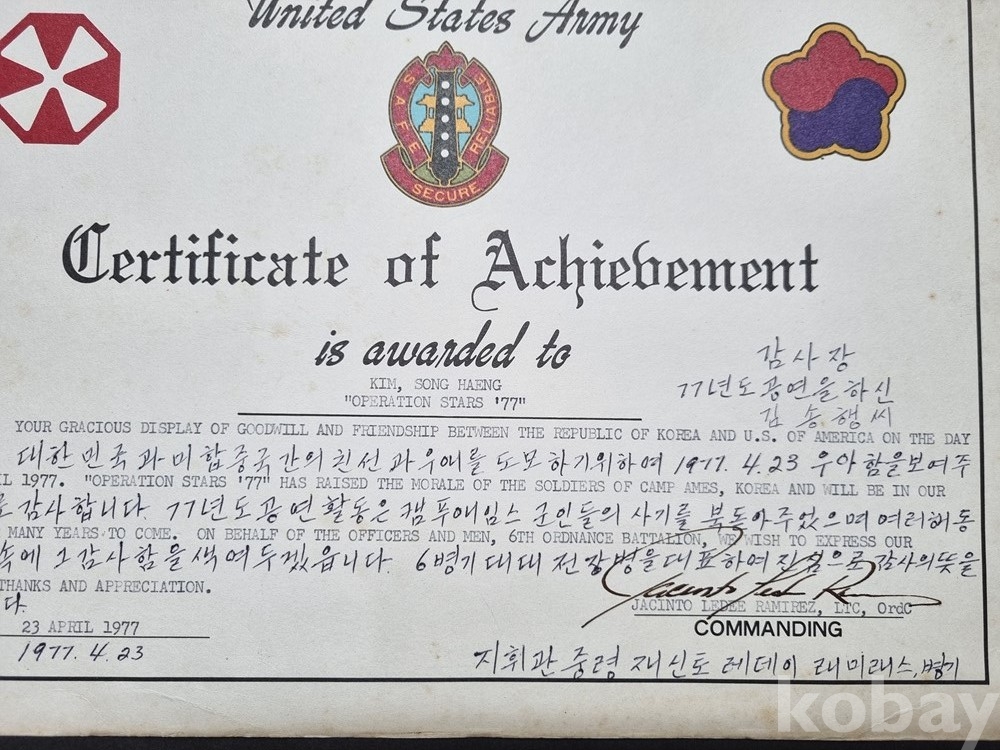 United States Army
SAFE
RELIABLE
SECURE
Certificate of Achievement
is awarded to
감사장
KIM, SONG HAENG
77년도공연을하신
"OPERATION STARS '77"
김송행씨
YOUR GRACIOUS DISPLAY OF GOODWILL AND FRIENDSHIP BETWEEN THE REPUBLIC OF KOREA AND U.S. OF AMERICA ON THE DAY
대한민국과미합중국간의친선과우애를도모하기위하여 1977. 4. 23 우아함을보여주
IL 1977. "OPERATION STARS '77" HAS RAISED THE MORALE OF THE SOLDIERS OF CAMP AMES, KOREA AND WILL BE IN OUR
로감사합니다. 77년도공연활동은캠푸애임스군인들의사기를북돋아주었으며여러해동
MANY YEARS TO COME. ON BEHALF OF THE OFFICERS AND MEN, 6TH ORDNANCE BATTALION, WE WISH TO EXPRESS OUR
속에그감사함을색여두겠읍니다. 6병기대대전장병을대표하여진심으로감사의뜻을
THANKS AND APPRECIATION.
다.
JACINTO LEDEE RAMIREZ, LTC, OrdC
23 APRIL 1977
COMMANDING
1977. 4. 23
지휘관중령재신토레데이래미래스,병기
kobay